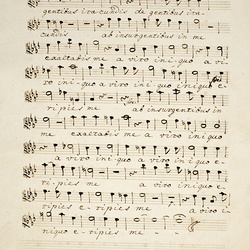 gentibus iracundis de gentibus me
cundis ab insurgentibus in me
exaltabis me a viro iniquo a vi
ro iniquo a viro iniquo iniquo e
ripies me ab insurgentibus in
me exaltabis me a viro iniquo
a viro iniquo a viro iniquo e
ripies me a viro iniquo e
ripies eripies me a viro i
niquo eripies me